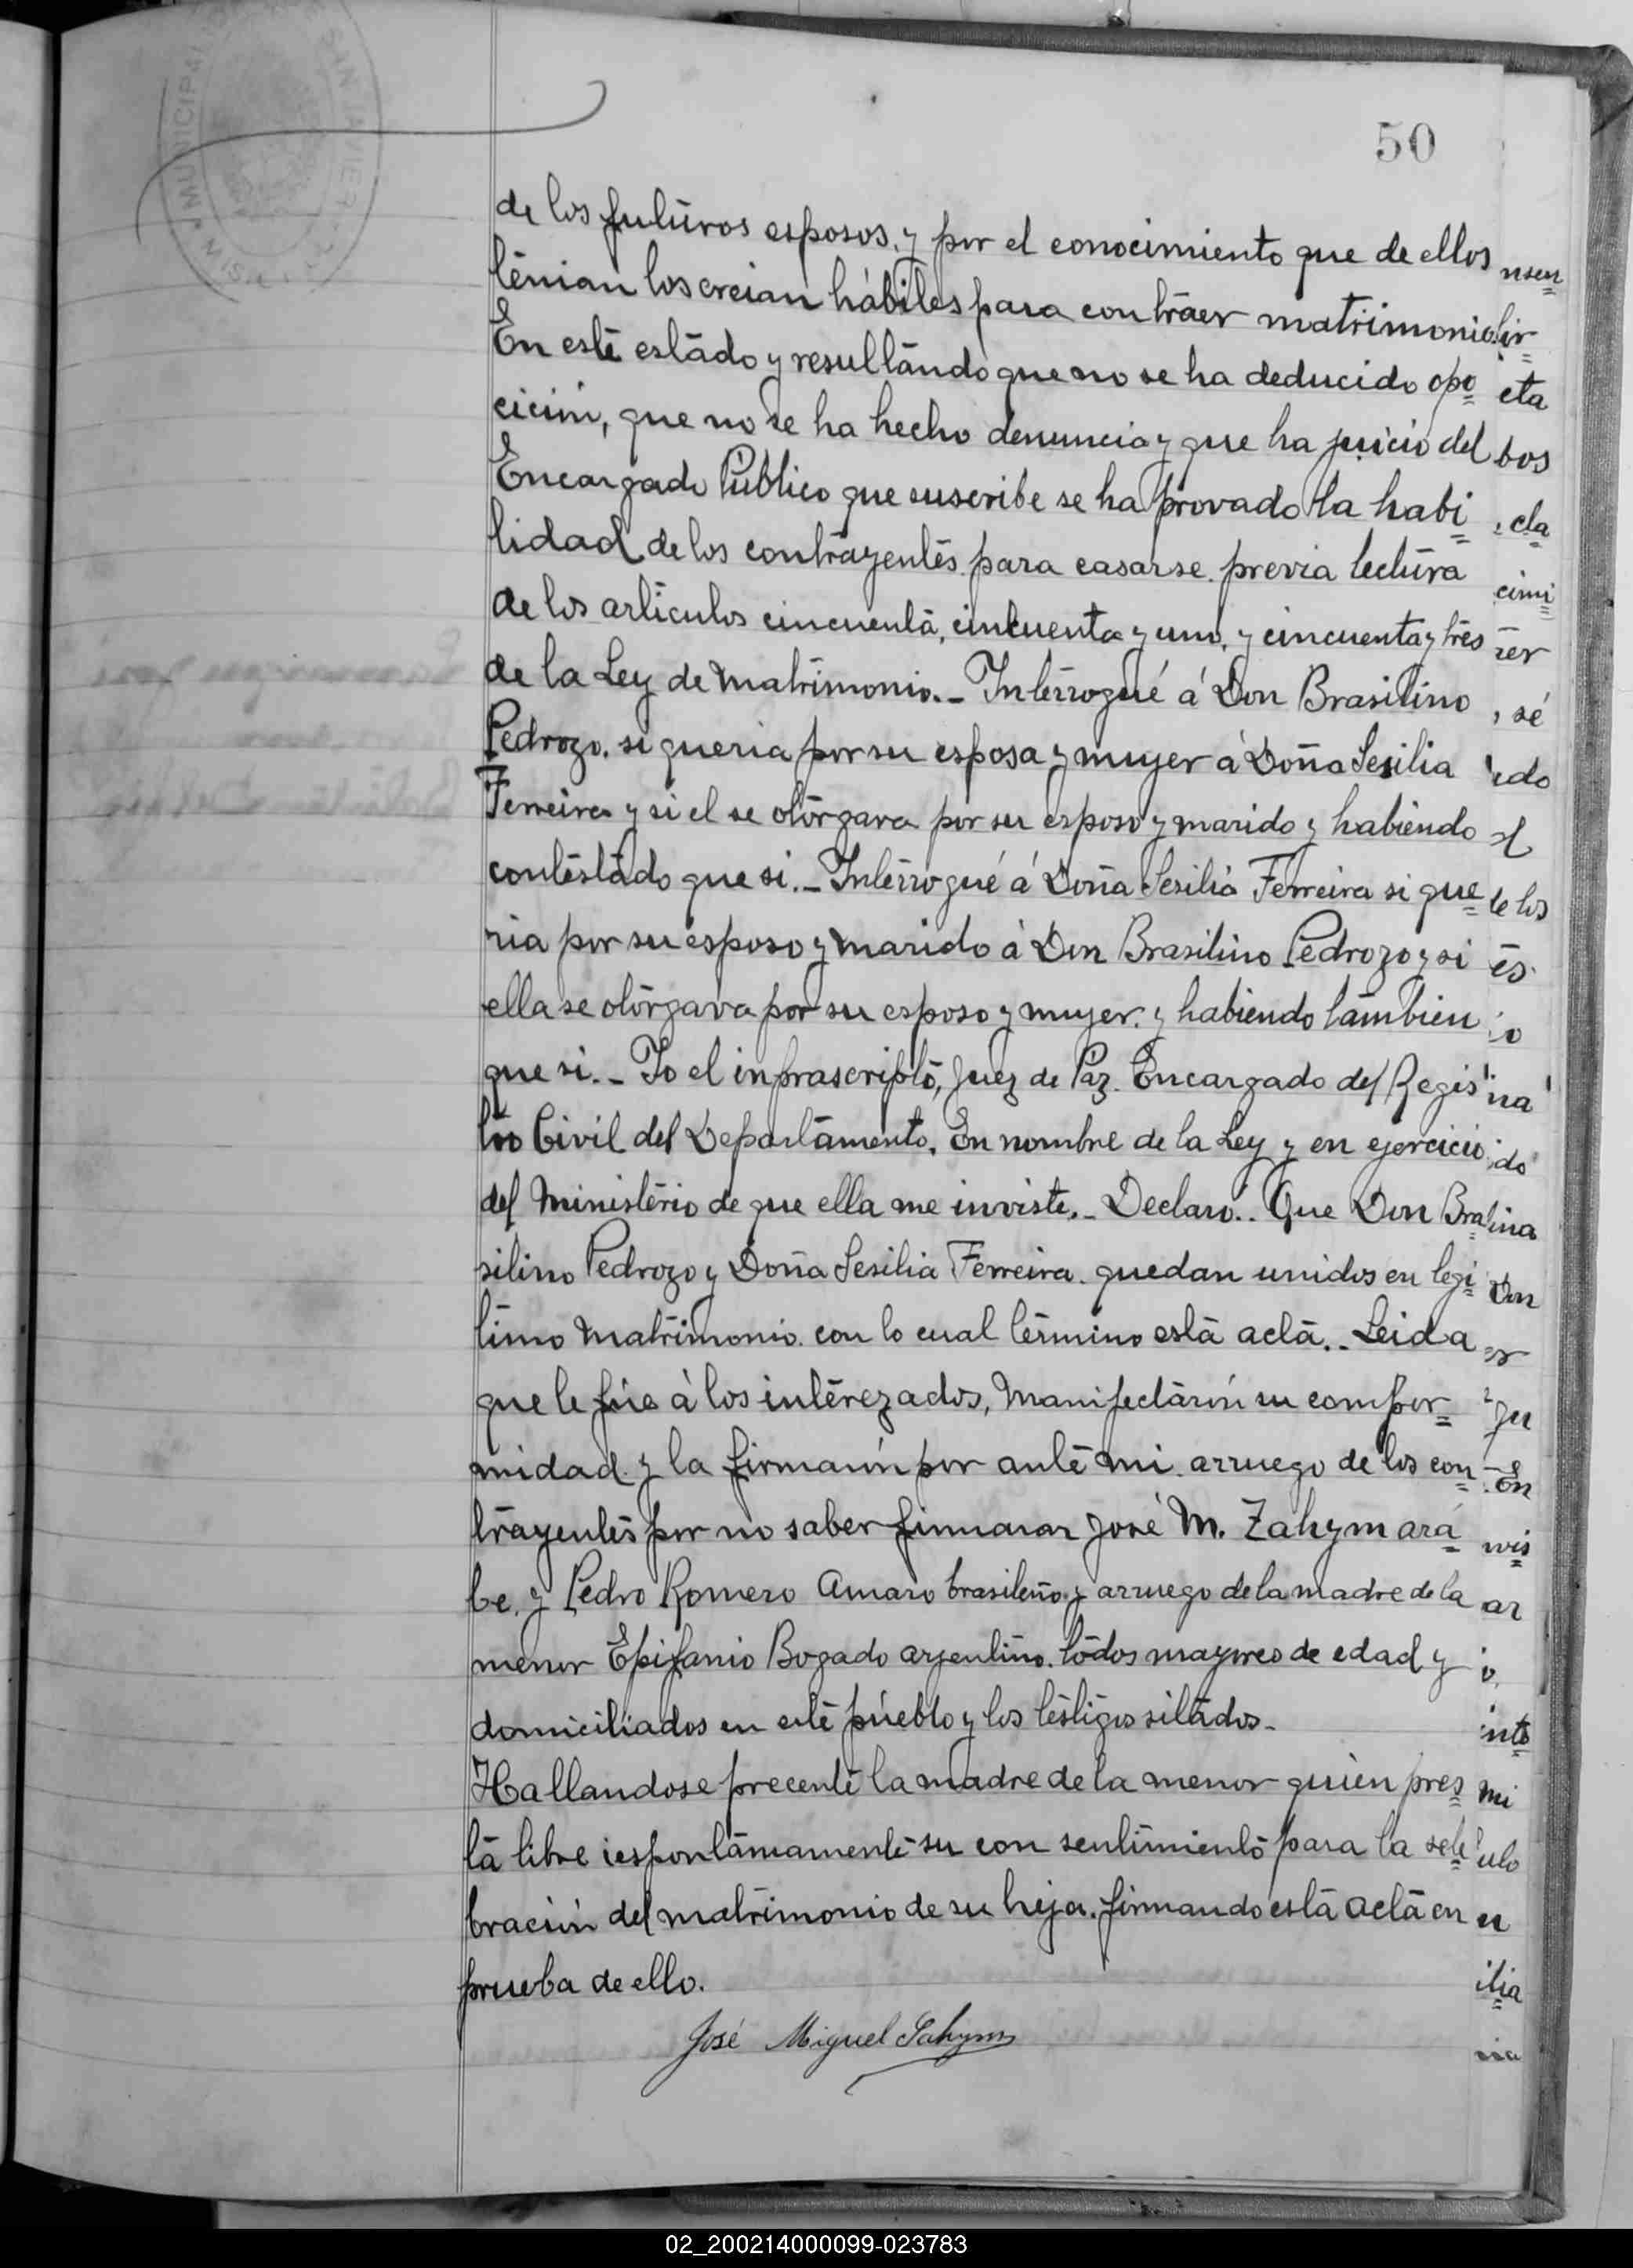 50
de los futuros esposos, y por el conocimiento que de ellos
tenian los creian hábiles para contraer matrimonio.
En este estado y resultando que no se ha deducido opo
cición, que no se ha hecho denuncia y que ha juicio del
Encargado Público que suscribe se ha provado la habi
lidad de los contrayentes para casarse. previa lectura
de los articulos cincuenta, cincuenta y uno, y cincuenta y tres
de la Ley de Matrimonio.- Interrogué á Don Brasilino
Pedrozo. si queria por su esposa y muyer á Doña Sesilia
Ferreira y si el se otorgava por su esposo y marido y habiendo
contestado que si.- Interrogué á Doña Sesilia Ferreira si que
ria por su esposo y marido á Don Brasilino Pedrozo y si
ella se otorgava por su esposo y muyer. y habiendo tambien
que si.- Yo el infrascripto, Juez de Paz. Encargado del Regis
tro Civil del Departamento. En nombre de la Ley y en ejercicio
del Ministerio de que ella me inviste.- Declaro.. Que Don Bra
silino Pedrozo y Doña Sesilia Ferreira. quedan unidos en legi
timo Matrimonio. con lo cual término esta acta.- Leida
que le fue á los interezados, Manifectarón su comfor
midad. y la firmarón por ante mi. arruego de los con
trayentes por no saber firmaran José M. Zahym ara
be. y Pedro Romero Amaro brasileño. y arruego de la madre de la
menor Epifanio Bogado argentino. todos mayores de edad y
domiciliados en este púeblo y los testigos sitados.-
Hallandose precente la madre de la menor quien pres
ta libre iespontaneamente su con sentimiento para la sele
bración del matrimonio de su hija. firmando esta acta en
prueba de ello.
José Miguel Sahym
02_200214000099-023783